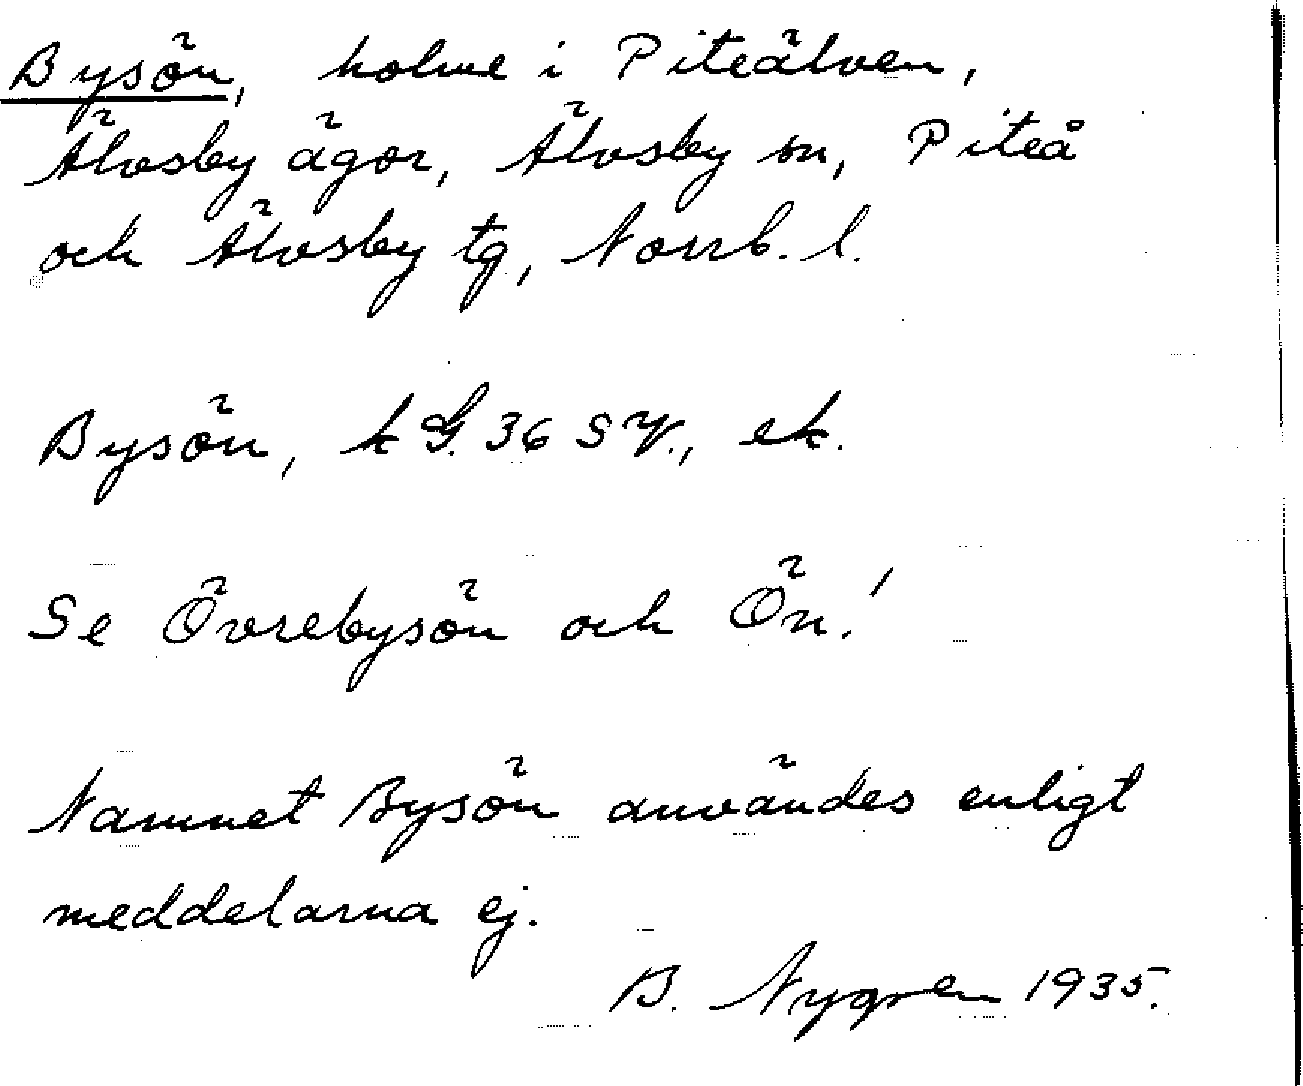 Bysön, holme i Piteälven,
Älvsby ägor, Älvsby sn, Piteå
och Älvsby tg, Norrb. l.
Bysön, k G. 36 SV., ek.
Se Övrebysön och Ön!
Namnet Bysön användes enligt
meddelarna ej.
B. Nygren 1935.